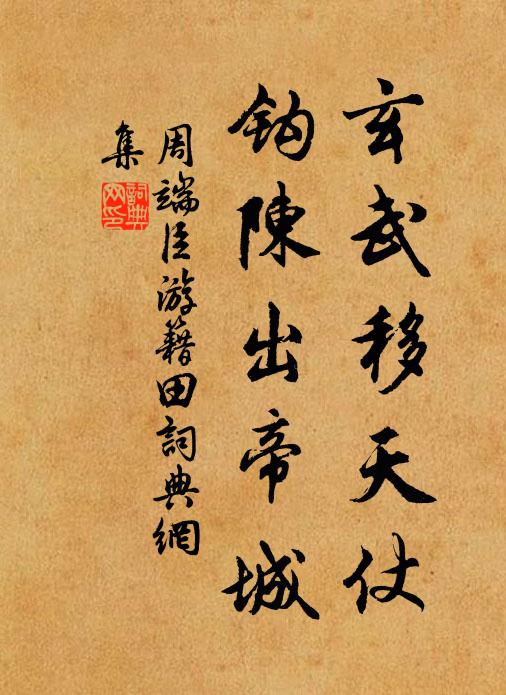 玄武移天仗
鈎陳出帝城
周端臣游籍田詞典網
集
詞典
网印